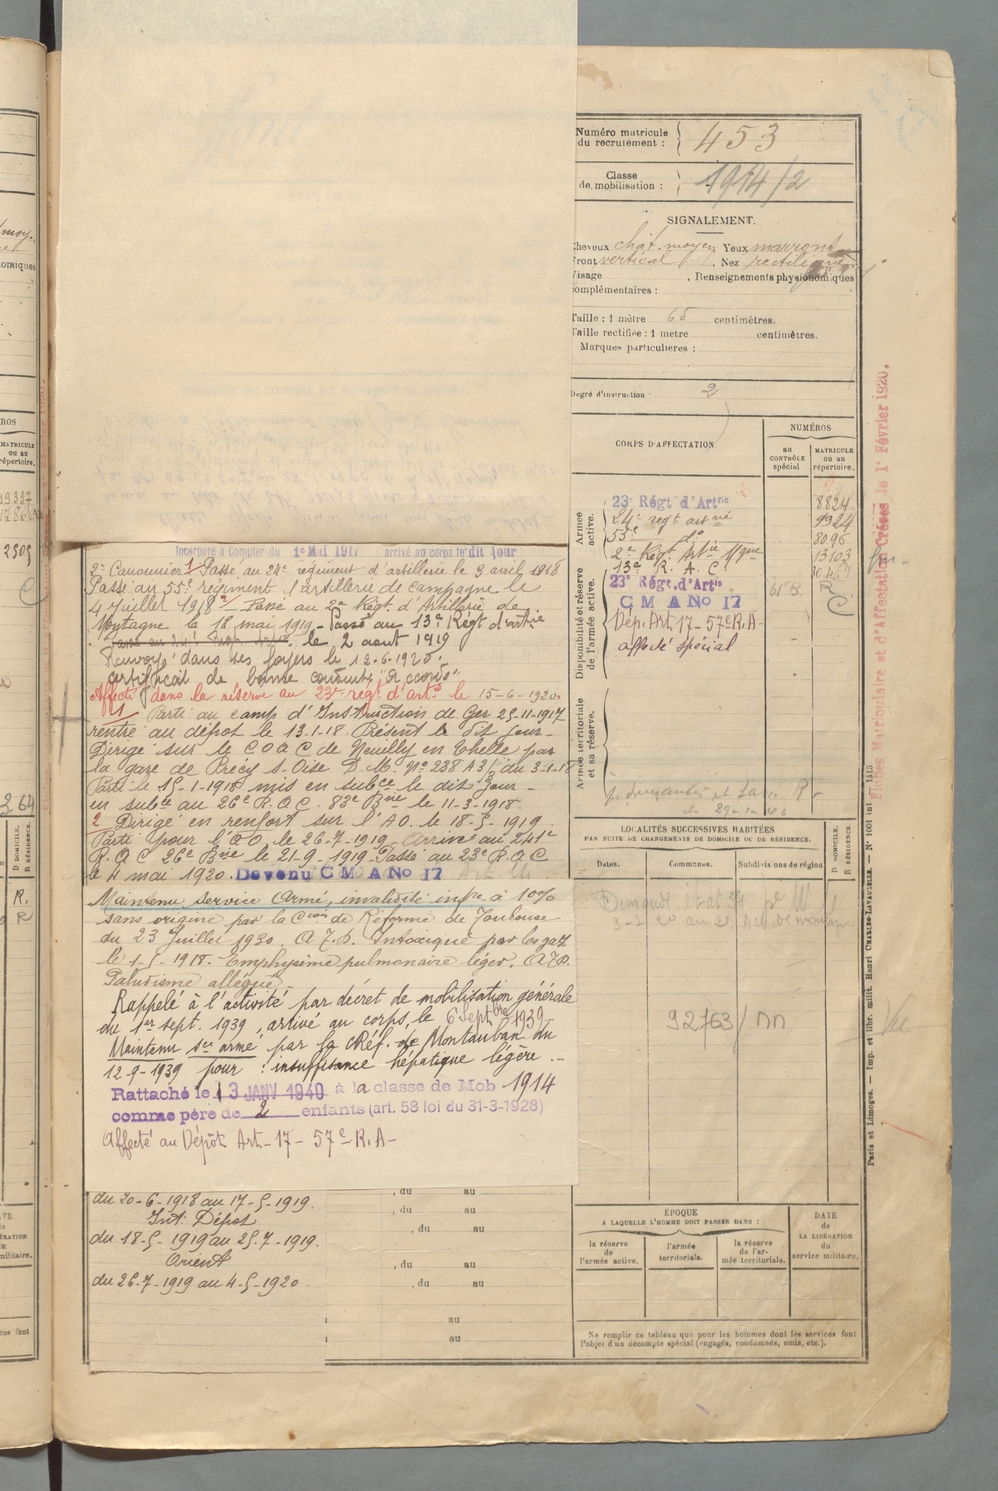 Numéro matricule du recrutement : 453
Classe de mobilisation : 1914/2
SIGNALEMENT.
Cheveux chât. moyen, Yeux marrons
Front vertical, Nez rectiligne
Visage , Renseignements physionomiques
complémentaires :
Taille : 1 mètre 65 centimètres.
Taille rectifiée : 1 mètre centimètres.
Marques particulières :
Degré d'instruction 2
CORPS D'AFFECTATION.
NUMÉROS
au CONTRÔLE spécial
MATRICULE ou au répertoire.
Armée active.
23e Régt d'Artrie 8824
24e regt artrie 9924
55e do 8096
2e Régt Artie Mgne 13103
13e R. A. C.
Disponibilité et réserve de l'armée active.
23e Régt. d'Artie
C M A No 17
Dép. Art. 17 - 57e R.A -
affecté spécial
Armée territoriale et sa réserve.
Incorporé à Compter du 1er Mai 1917 arrivé au corps le dit jour
2e Canonnier 1 Passé au 24e régiment d'artillerie le 3 avril 1918
Passé au 55e régiment d'artillerie de campagne le
4 Juillet 1918 2 Passé au 2e Régt. d'Artillerie de
Montagne le 18 mai 1919 - Passé au 13e Régt d'artie
le 2 aout 1919
Renvoyé dans ses foyers le 12-6-1920.
certificat de bonne conduite "accordé"
Affecté dans la réserve au 23e regt d'artie le 15-6-1920.
1 Parti au camp d'Instruction de Ger 25-11-1917
rentré au dépot le 13.1.18. Présent le dit jour -
Dirigé sur le C O A C de Neuilly en Thelle par
la gare de Précy s. Oise D. M. No 238 A 3/ du 3-1-18
Parti le 15-1-1918 mis en subce le dit jour -
en subce au 26e R.A.C. 83e Brie le 11-3-1918
2 Dirigé en renfort sur l'A.O. le 18-5-1919
Parti pour l'A O, le 26-7-1919. Arrivé au 241e
R.A.C 26e Brie le 21-9-1919. Passé au 23e R.A.C
le 4 mai 1920. Devenu C M A No 17
Maintenu service Armé, invalidité infre à 10%
sans origine par la Cion de Réforme de Toulouse
du 23 Juillet 1930. A.J.D. Intoxiqué par les gaz
le 1-5-1918. Emphysème pulmonaire léger. A.J.D.
Paludisme allégué.
Rappelé à l'activité par décret de mobilisation générale
du 1er sept. 1939, arrivé au corps le 6 Septbre 1939
Maintenu sce armé par la CRéf. de Montauban du
12-9-1939 pour : insuffisance hépatique légère. -
Rattaché le 13 JANV 1940 à la classe de Mob 1914
comme père de 2 enfants (art. 58 loi du 31-3-1928)
Affecté au Dépôt Art - 17 - 57e R.A -
du 20-6-1918 au 17-5-1919.
Int. Dépot
du 18-5-1919 au 25-7-1919.
Orient
du 26-7-1919 au 4-5-1920
, du au
, du au
, du au
, du au
, du au
au
au
LOCALITÉS SUCCESSIVES HABITÉES
PAR SUITE DE CHANGEMENTS DE DOMICILE OU DE RÉSIDENCE.
Dates. Communes. Subdivisions de région
D DOMICILE.
R RÉSIDENCE.
92763/
ÉPOQUE
A LAQUELLE L'HOMME DOIT PASSER DANS :
la réserve de l'armée active.
l'armée territoriale.
la réserve de l'armée territoriale.
DATE de LA LIBÉRATION du service militaire.
Ne remplir ce tableau que pour les hommes dont les services font
l'objet d'un décompte spécial (engagés, condamnés, omis, etc.).
Fiches Matriculaire et d'Affectation Créées le 1er Février 1920.
Paris et Limoges. — Imp. et libr. milit. Henri CHARLES-LAVAUZELLE.